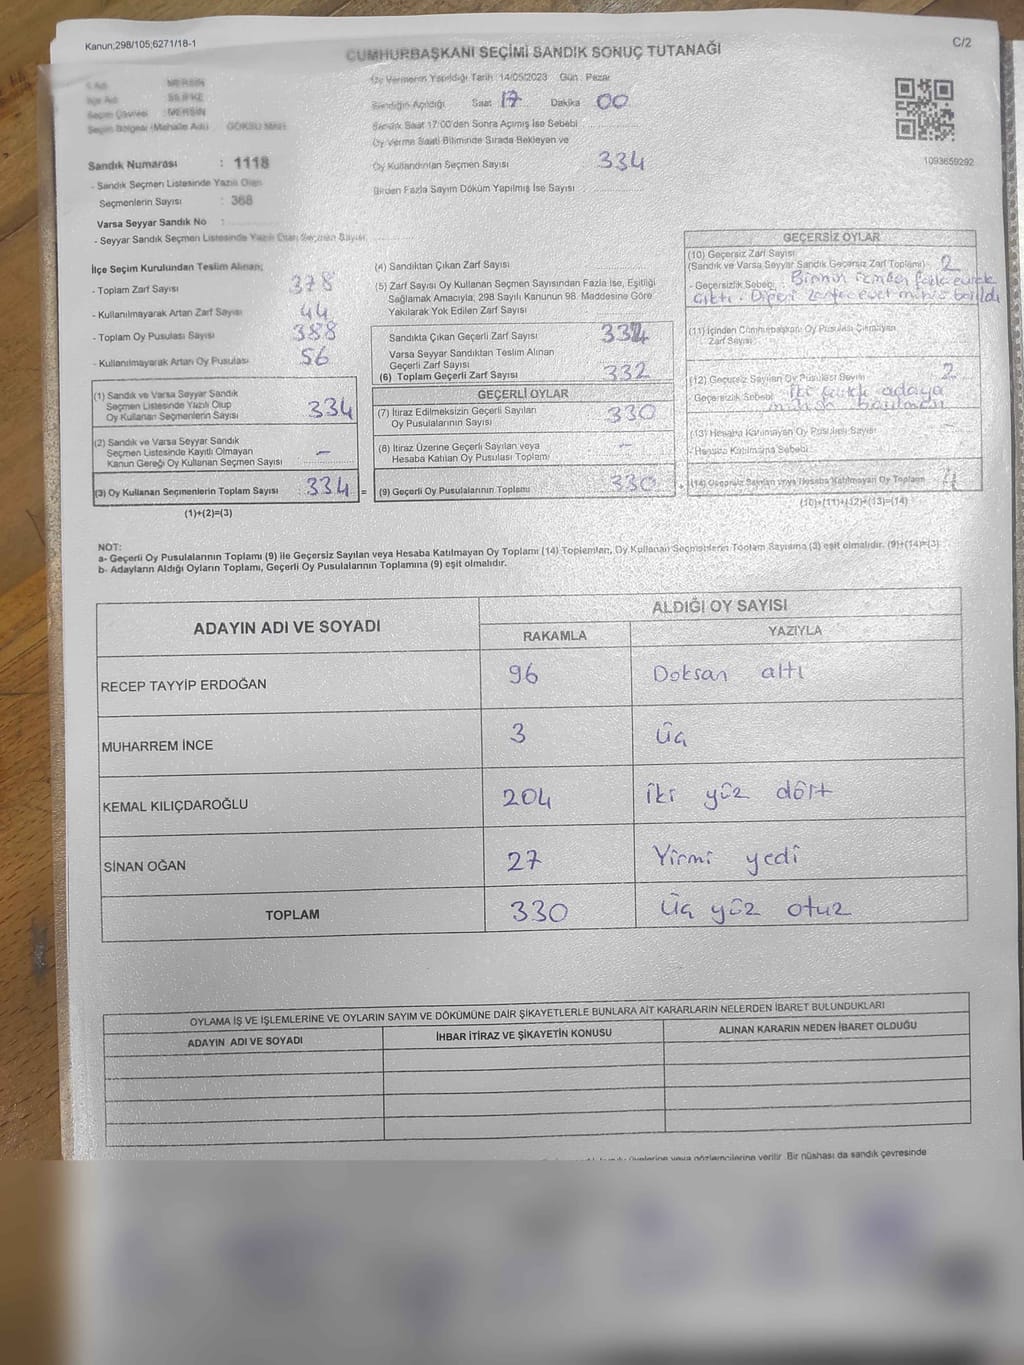 Kanun;298/105;6271/18-1
C/2
CUMHURBAŞKANI SEÇİMİ SANDIK SONUÇ TUTANAĞI
Oy Vermenin Yapıldığı Tarih: 14/05/2023 Gün: Pazar
İlçe Adı SİLİFKE
Seçim Çevresi :MERSİN
Sandığın Açıldığı Saat 17 Dakika 00
Seçim Bölgesi (Mahalle Adı) GÖKSU MAH.
Sandık Saat 17:00'den Sonra Açılmış İse Sebebi
Oy Verme Saati Bitiminde Sırada Bekleyen ve
Oy Kullandırılan Seçmen Sayısı 334
1093659292
Sandık Numarası : 1118
- Sandık Seçmen Listesinde Yazılı Olan
Seçmenlerin Sayısı : 368
Birden Fazla Sayım Döküm Yapılmış İse Sayısı :
Varsa Seyyar Sandık No :
- Seyyar Sandık Seçmen Listesinde Yazılı Olan Seçmen Sayısı
İlçe Seçim Kurulundan Teslim Alınan;
- Toplam Zarf Sayısı 378
- Kullanılmayarak Artan Zarf Sayısı 44
- Toplam Oy Pusulası Sayısı 388
- Kullanılmayarak Artan Oy Pusulası 56
(1) Sandık ve Varsa Seyyar Sandık
Seçmen Listesinde Yazılı Olup
Oy Kullanan Seçmenlerin Sayısı 334
(2) Sandık ve Varsa Seyyar Sandık
Seçmen Listesinde Kayıtlı Olmayan
Kanun Gereği Oy Kullanan Seçmen Sayısı –
(3) Oy Kullanan Seçmenlerin Toplam Sayısı 334 =
(1)+(2)=(3)
(4) Sandıktan Çıkan Zarf Sayısı
(5) Zarf Sayısı Oy Kullanan Seçmen Sayısından Fazla İse, Eşitliği
Sağlamak Amacıyla, 298 Sayılı Kanunun 98. Maddesine Göre
Yakılarak Yok Edilen Zarf Sayısı
Sandıkta Çıkan Geçerli Zarf Sayısı
Varsa Seyyar Sandıktan Teslim Alınan
Geçerli Zarf Sayısı
(6) Toplam Geçerli Zarf Sayısı 332
GEÇERLİ OYLAR
(7) İtiraz Edilmeksizin Geçerli Sayılan
Oy Pusulalarının Sayısı 330
(8) İtiraz Üzerine Geçerli Sayılan veya
Hesaba Katılan Oy Pusulası Toplamı –
(9) Geçerli Oy Pusulalarının Toplamı 330 +
GEÇERSİZ OYLAR
(10) Geçersiz Zarf Sayısı
(Sandık ve Varsa Seyyar Sandık Geçersiz Zarf Toplamı) 2
- Geçersizlik Sebebi : Birinin içinden fazla evrak
çıktı. Diğeri zarfa evet mührü basıldı
(11) İçinden Cumhurbaşkanı Oy Pusulası Çıkmayan
Zarf Sayısı
(12) Geçersiz Sayılan Oy Pusulası Sayısı 2
Geçersizlik Sebebi: İki farklı adaya
(13) Hesaba Katılmayan Oy Pusulası Sayısı –
- Hesaba Katılmama Sebebi :
(14) Geçersiz Sayılan veya Hesaba Katılmayan Oy Toplamı 4
(10)+(11)+(12)+(13)=(14)
NOT:
a- Geçerli Oy Pusulalarının Toplamı (9) ile Geçersiz Sayılan veya Hesaba Katılmayan Oy Toplamı (14) Toplamları, Oy Kullanan Seçmenlerin Toplam Sayısına (3) eşit olmalıdır. (9)+(14)=(3)
b- Adayların Aldığı Oyların Toplamı, Geçerli Oy Pusulalarının Toplamına (9) eşit olmalıdır.
ADAYIN ADI VE SOYADI
ALDIĞI OY SAYISI
RAKAMLA YAZIYLA
RECEP TAYYİP ERDOĞAN 96 Doksan altı
MUHARREM İNCE 3 Üç
KEMAL KILIÇDAROĞLU 204 iki yüz dört
SİNAN OĞAN 27 Yirmi yedi
TOPLAM 330 Üç yüz otuz
OYLAMA İŞ VE İŞLEMLERİNE VE OYLARIN SAYIM VE DÖKÜMÜNE DAİR ŞİKAYETLERLE BUNLARA AİT KARARLARIN NELERDEN İBARET BULUNDUKLARI
ADAYIN ADI VE SOYADI İHBAR İTİRAZ VE ŞİKAYETİN KONUSU ALINAN KARARIN NEDEN İBARET OLDUĞU
üyelerine veya gözlemcilerine verilir. Bir nüshası da sandık çevresinde